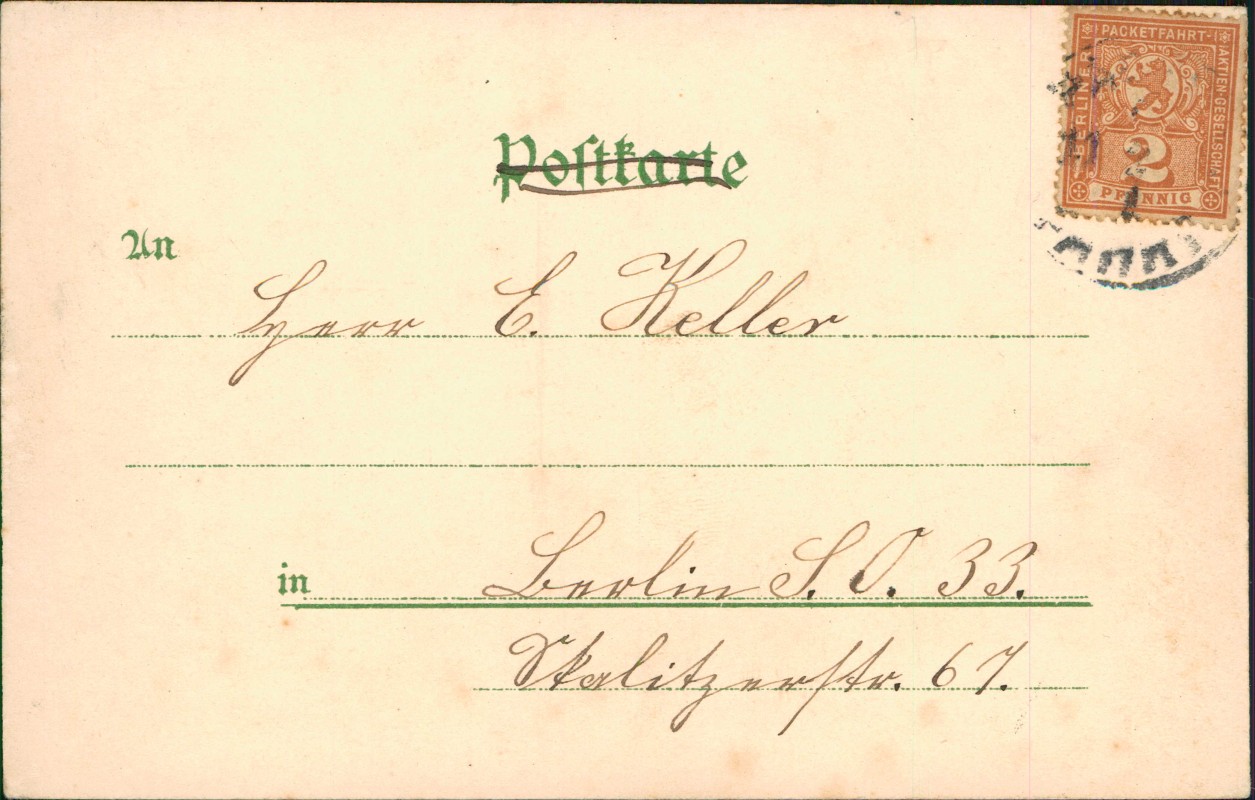 PACKETFAHRT-
BERLINER
AKTIEN-GESELLSCHAFT
2
PFENNIG
Postkarte
An
Herr E. Keller
in Berlin S. O. 33.
Skalitzerstr. 67.